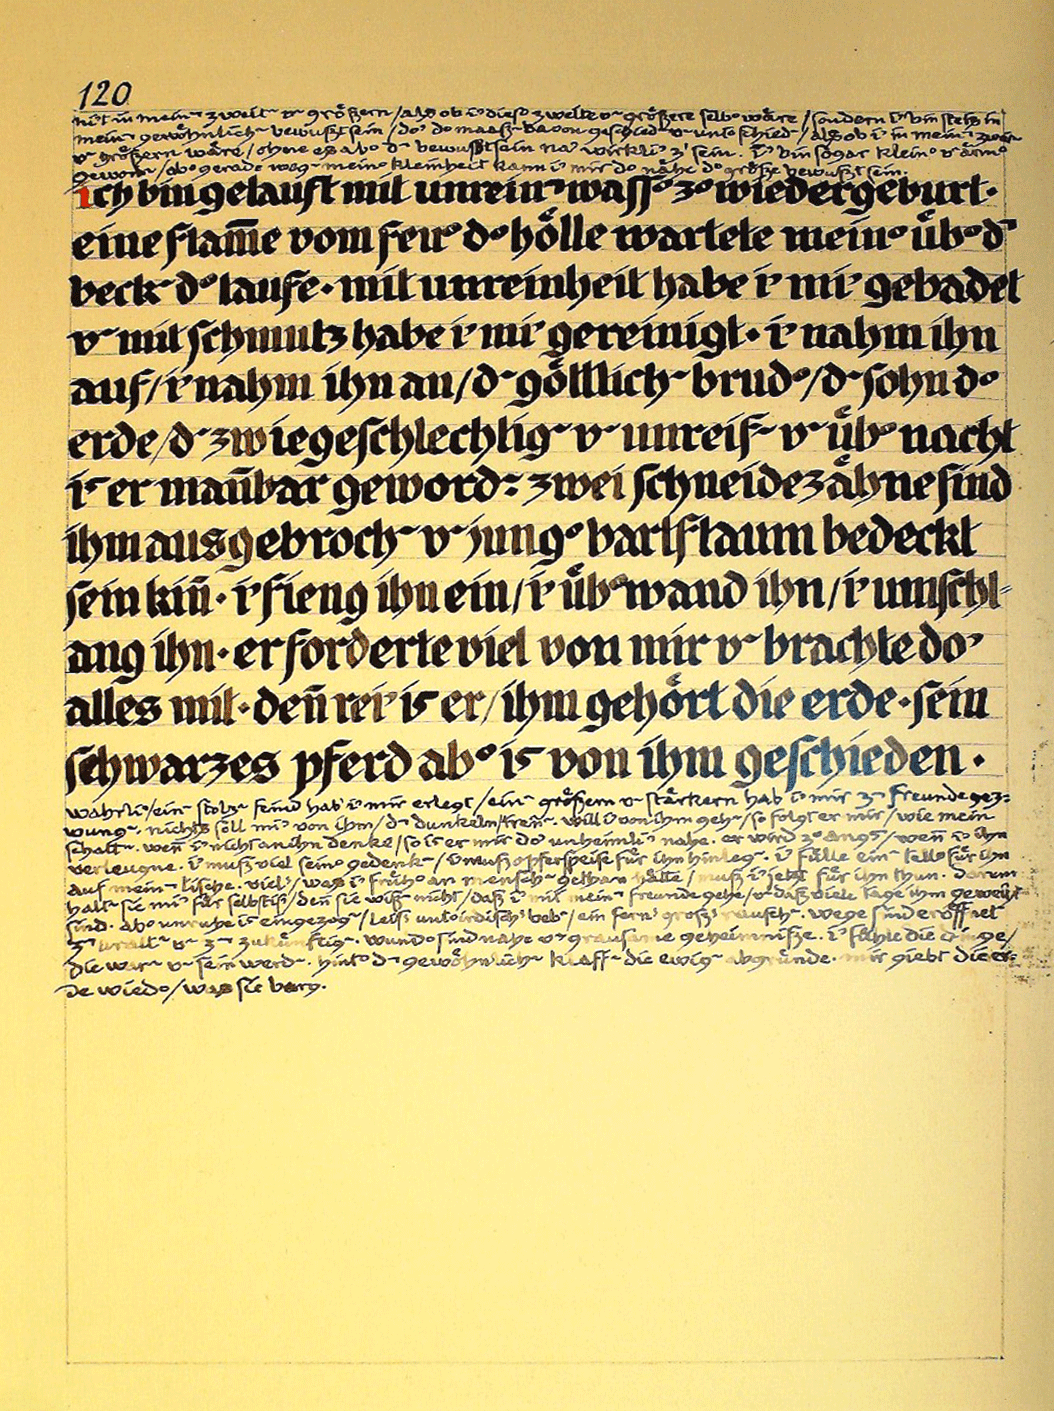 120
nicht in mein‾ zweit‾ u‾ größern / als ob i' dieso zweite u‾ größere selbo wäre / sondern i' bin stets in
mein‾ gewöhnlich‾ bewußtsein / do' do maaß‾ davon geschied‾ u‾ unto schied‾ / als ob i' in mein‾ zweit‾
u‾ größern wäre / ohne es abo d‾ bewußtsein na' wirkli' z' sein. i' bin sogar kleino u‾ ärmo
geword‾ / abo gerade weg‾ meino kleinheit kann i' mir do nähe do größe bewußt sein.
ich bin getauft mit unrein° wass° z° wiedergeburt·
eine flam̄e vom feir° d° hölle wartete mein° üb° d‾
beck‾ d° taufe· mit unreinheit habe i' mi' gebadet
u‾ mit schmutz habe i' mi' gereinigt· i' nahm ihn
auf / i' nahm ihn an / d‾ göttlich‾ brud° / d‾ sohn d°
erde / d‾ zwiegeschlechtig‾ u‾ unreif‾ u‾ üb° nacht
is‾ er man̄bar geword‾: zwei schneidezähne sind
ihm ausgebroch‾ u‾ jung° bartflaum bedeckt
sein kin̄· i' fieng ihn ein / i' üb°wand ihn / i' umschl-
ang ihn· er forderte viel von mir u‾ brachte do'
alles mit· den̄ rei' is‾ er / ihm gehört die erde· sein
schwarzes pferd ab° is‾ von ihm geschieden·
wahrli' / ein‾ stolz‾ feind hab i' mir erlegt / ein‾ größern u‾ stärkern hab i' mir z‾ freunde gez-
wung‾. nichts soll mi' von ihm / d‾ dunkeln / tren̄‾. will i' von ihm geh‾ / so folgt er mir / wie mein
schatt‾. wen̄ i' nicht an ihn denke / so is er mir do' unheimli' nahe. er wird z° angst / wen̄ i' ihn
verleugne. i' muß viel seino gedenk‾ / i' muß opferspeise für ihn hinleg‾. i' fülle ein‾ tello für ihn
auf mein‾ tische. viel' / was i' früho an mensch‾ gethan hätte / muß i' jetzt für ihn thun. darum
halt‾ sie mi' für selbstis' / den̄ sie wiß‾ nicht / daß i' mit mein‾ freunde gehe / u‾ daß viele tage ihm geweiht
sind. abo unruhe is eingezog‾ / leis' untoirdisch' beb‾ / ein fern' groß' rausch‾. wege sind eröffnet
z‾ uralt‾ u‾ z‾ zukünftig‾. wundo sind nahe u‾ grausame geheimniße. i' fühle die dinge /
die war‾ u‾ sein werd‾. hinto d‾ gewöhnlich‾ klaff‾ die ewig‾ abgründe. mir giebt die er-
de wiedo / was sie barg.